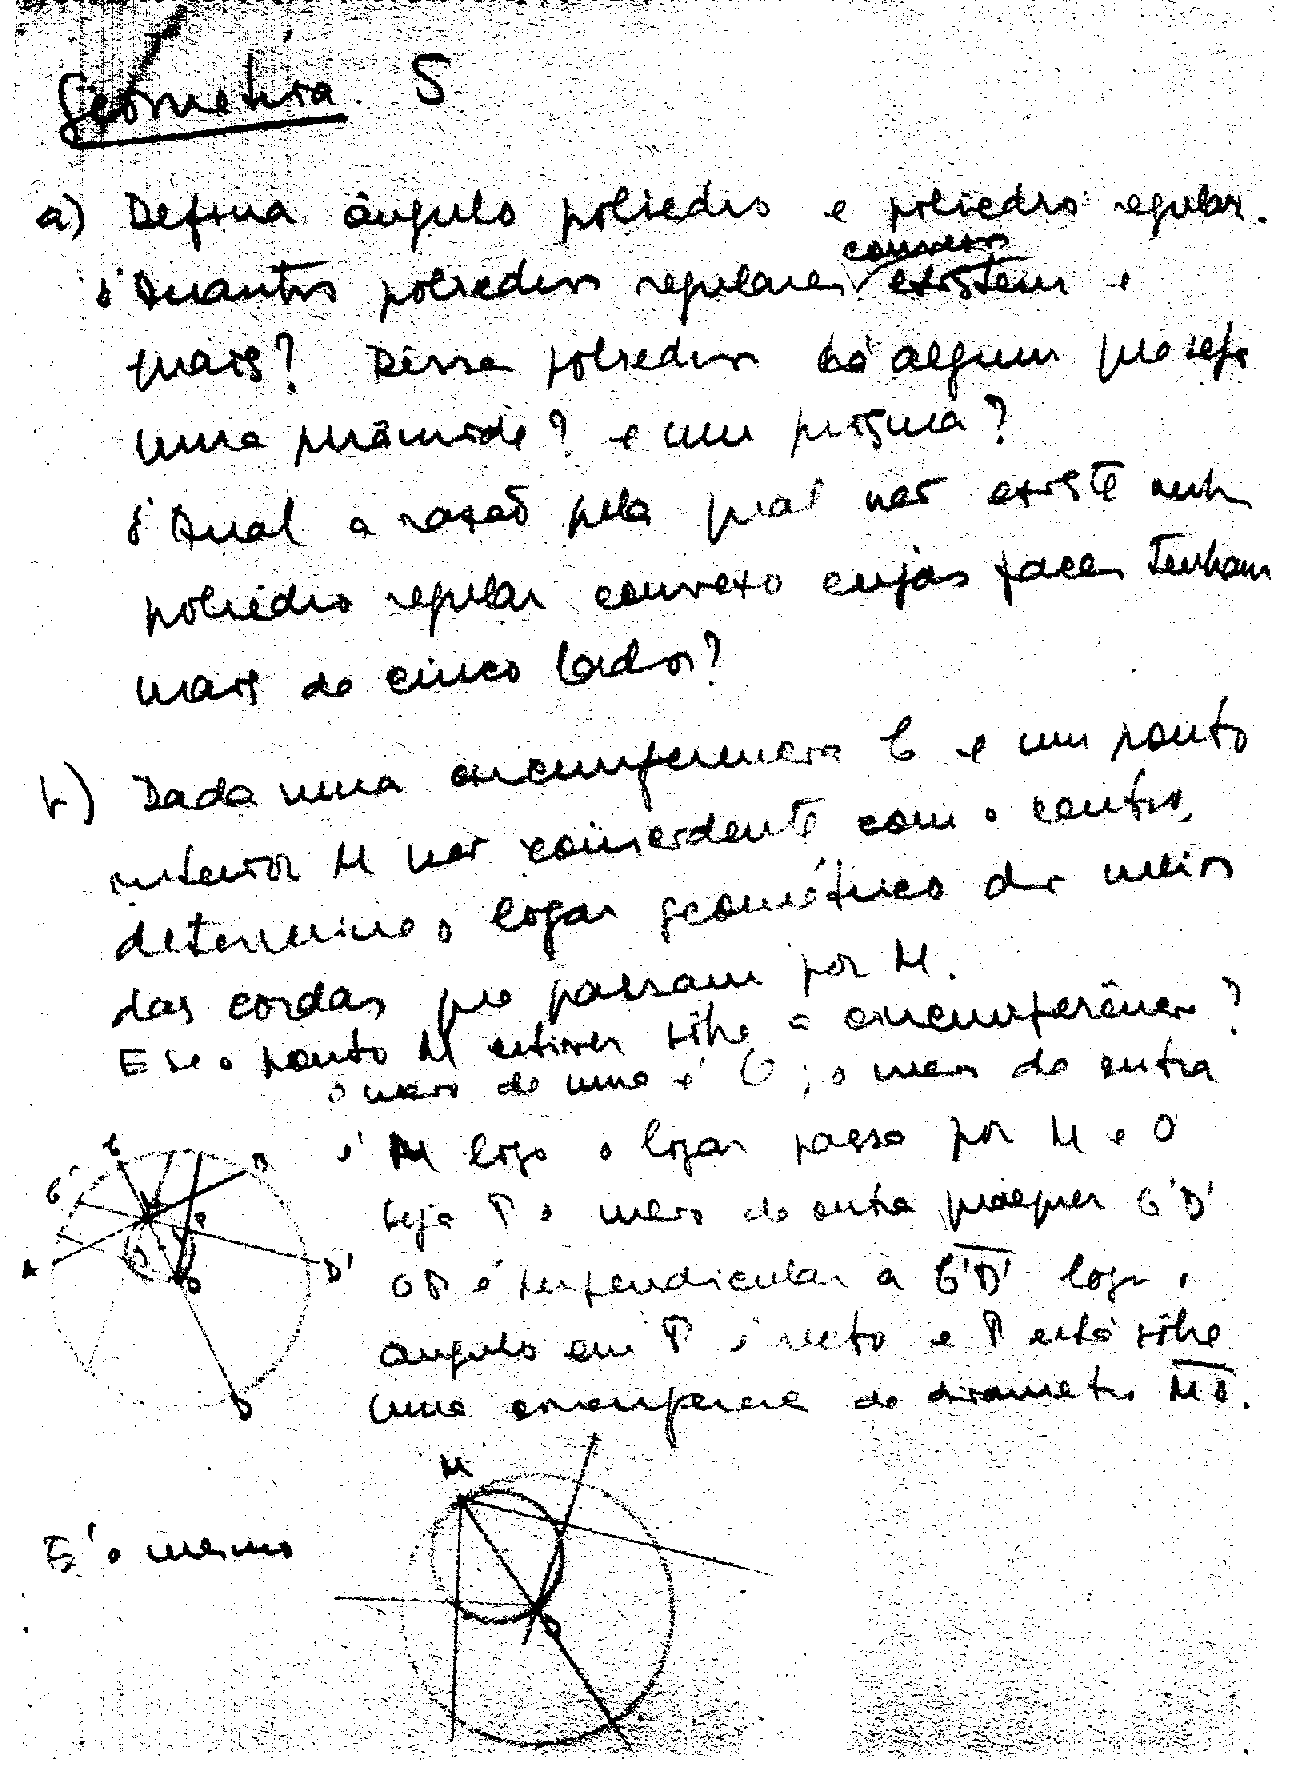 Geometria. 5
a) Defina ângulo poliedro e poliedro regular.
Quantos poliedros regulares convexos existem e
quais? Dêsses poliedros há algum que seja
uma pirâmide? e um prisma?
Qual a razão pela qual não existe nenh
poliédro regular convexo cujas faces tenham
mais de cinco lados?
b) Dada uma circunferencia C e um ponto
interior M não coincidente com o centro,
determine o logar geométrico dos meios
das cordas que passam por M.
E se o ponto M estiver sôbre a circunferência?
o meio de uma é O; o meio de outra
é M logo o logar passa por M e O
Seja P o meio de outra qualquer C'D'
OP é perpendicular a C'D' logo o
angulo em P é recto e P está sôbre
uma circunferencia de diametro MO.
C
D
C'
M
P
A
D'
O
D
M
É o mesmo
O